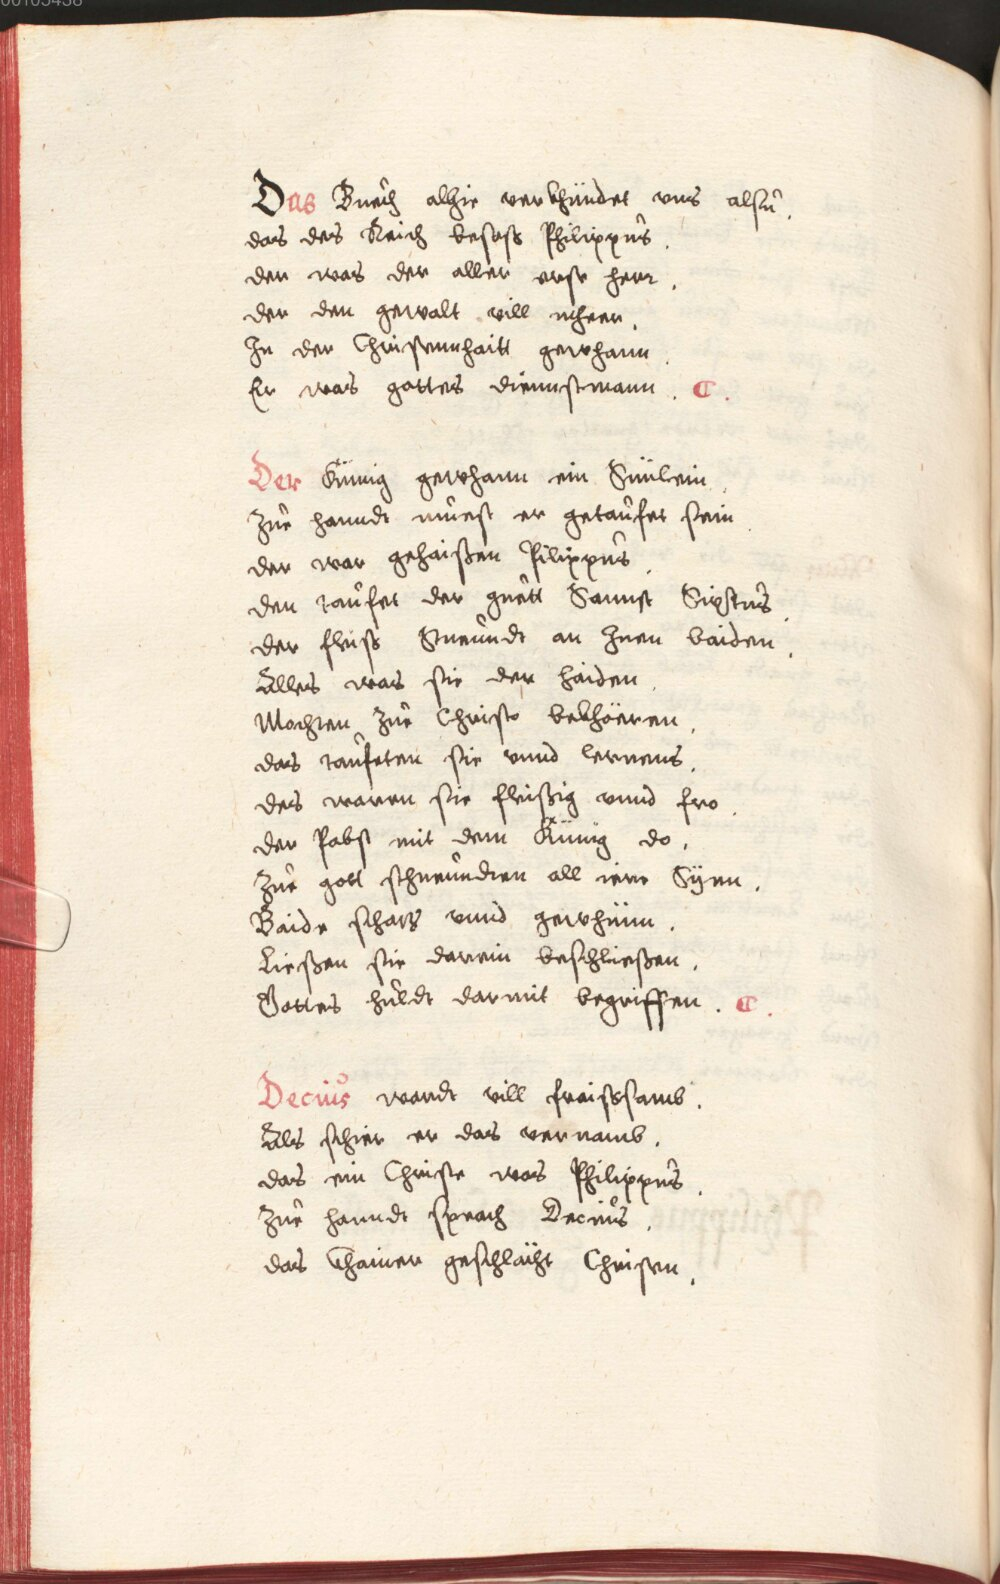 Das Buech alhie verkhündet vns alsu̍.
das des Reich besass Philippus.
der was der aller erst herr.
der den gewalt vill mheer.
In der Christennhaitt gewhann.
Er was gottes diennstmann. C.
Der Künig gewhann ein Sünlein.
Zue hanndt muest er getaufet sein.
der war gehaißen Filippus.
den taufet der guett Sannt Sixtus.
der fleiss Stneundt an Inen baiden.
Alles was sie der haiden.
Mochten Zue Christo bekhören.
das taufeten sie vnnd lernens.
des waren sie fleißig vnnd fro.
der Pabst mit dem Künig do.
Zue gott schneundten all iere Synn.
Baide schatz vnnd gewhinn.
Liessen sie darein beschließen.
Gottes huldt darmit begriffen. C.
Decius wardt vill fraisssamb.
Als schier er das vernamb.
das ein Christe was Philippus.
Zue hanndt sprach Decius.
das khainer geschlächt Christen.